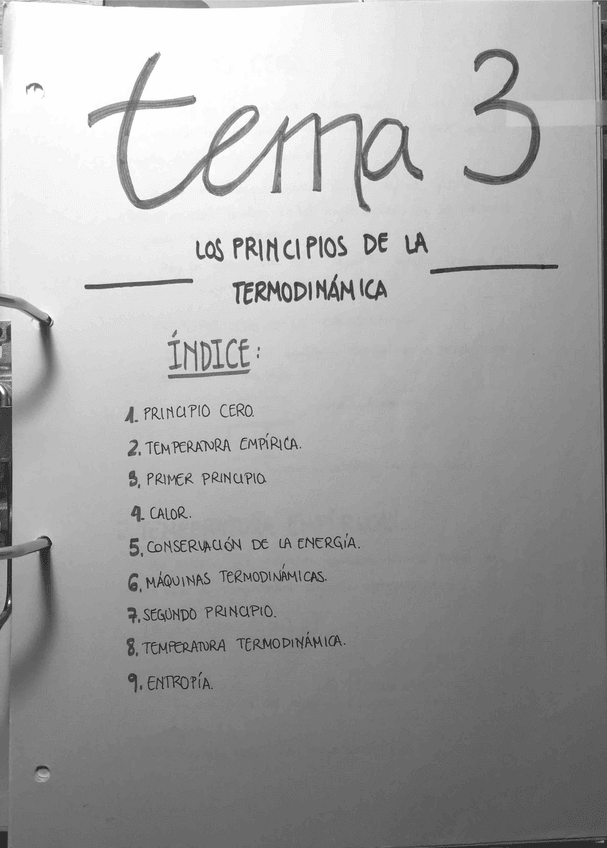 tema 3
LOS PRINCIPIOS DE LA
TERMODINÁMICA
ÍNDICE:
1. PRINCIPIO CERO.
2. TEMPERATURA EMPÍRICA.
3. PRIMER PRINCIPIO.
4. CALOR.
5. CONSERVACIÓN DE LA ENERGÍA.
6. MÁQUINAS TERMODINÁMICAS.
7. SEGUNDO PRINCIPIO.
8. TEMPERATURA TERMODINÁMICA.
9. ENTROPÍA.